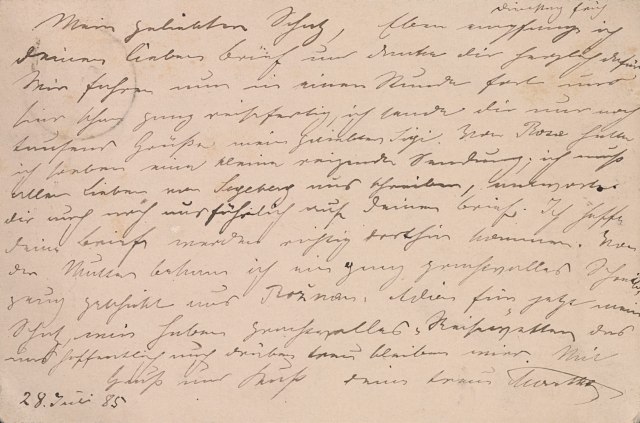 Dienstag früh
Mein geliebter Schatz, Eben empfing ich
deinen lieben Brief und danke dir herzlich dafür
Wir fahren nun in einer Stunde fort und
sind schon ganz reisefertig ich sende dir nur noch
tausend Grüße mein geliebter Sigi. Von Rosa hatte
ich soeben eine kleine reizende Sendung; ich muß
allen Lieben von aus schreiben, antworte
dir auch noch ausführlich auf deinen Brief. Ich hoffe
deine Briefe werden richtig dorthin kommen. Von
der Mutter bekam ich ein ganz prachtvolles
geschickt aus Rožnau. Adieu für jetzt mein
Schatz, wir haben prachtvolles Reisewetter, das
uns hoffentlich auch drüben treu bleiben wird. Mit
Gruß und Kuß deine treue Martha
28. Juli 85